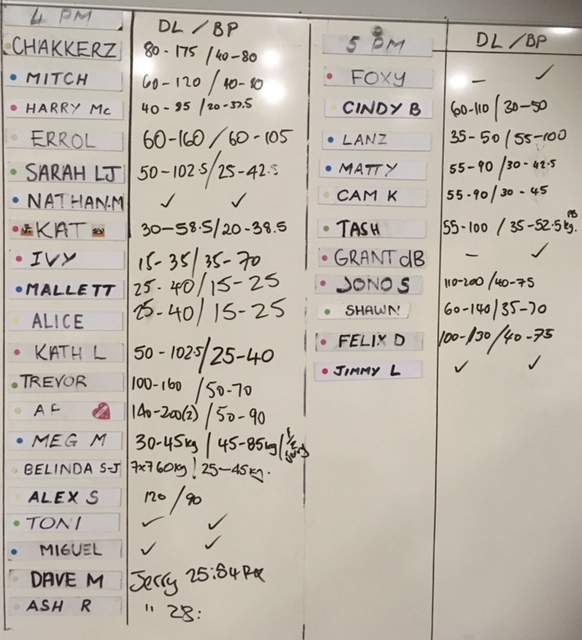 4 PM DL / BP
CHAKKERZ 80-175 / 40-80
MITCH 60-120 / 40-80
HARRY Mc 40-85 / 20-37.5
ERROL 60-160 / 60-105
SARAH LJ 50-102.5 / 25-42.5
NATHAN.M ✓ ✓
KAT 30-58.5 / 20-38.5
IVY 15-35 / 35-70
MALLETT 25-40 / 15-25
ALICE 25-40 / 15-25
KATH L 50-102.5 / 25-40
TREVOR 100-160 / 50-70
AF 140-200(2) / 50-90
MEG M 30-45kg / 45-85kg /
BELINDA S-J 7x760kg / 25-45kg.
ALEX S 120 / 90
TONI ✓ ✓
MIGUEL ✓ ✓
DAVE M Jerry 25:84 RX
ASH R " 28:
5 PM DL / BP
FOXY - ✓
CINDY B 60-110 / 30-50
LANZ 35-50 / 55-100
MATTY 55-90 / 30-42.5
CAM K 55-90 / 30-45
TASH 55-100 / 35-52.5kg. PB
GRANT dB - ✓
JONO S 110-200 / 40-75
SHAWN 60-140 / 35-70
FELIX D 100-130 / 40-75
JIMMY L ✓ ✓